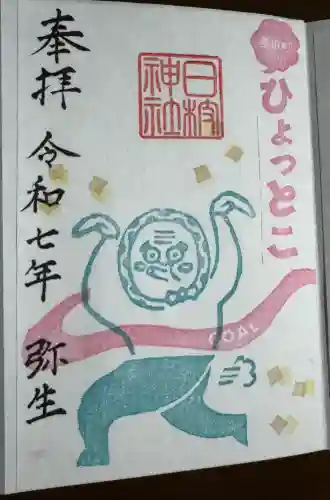 奉拝
令和七年
弥生
日枝
神社
ひょっとこ
GOAL